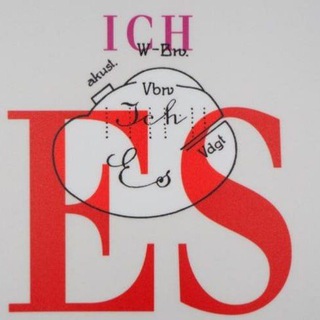 ICH
W-Bw.
akust.
Vbw
Ich
Vdgt
Es
ES